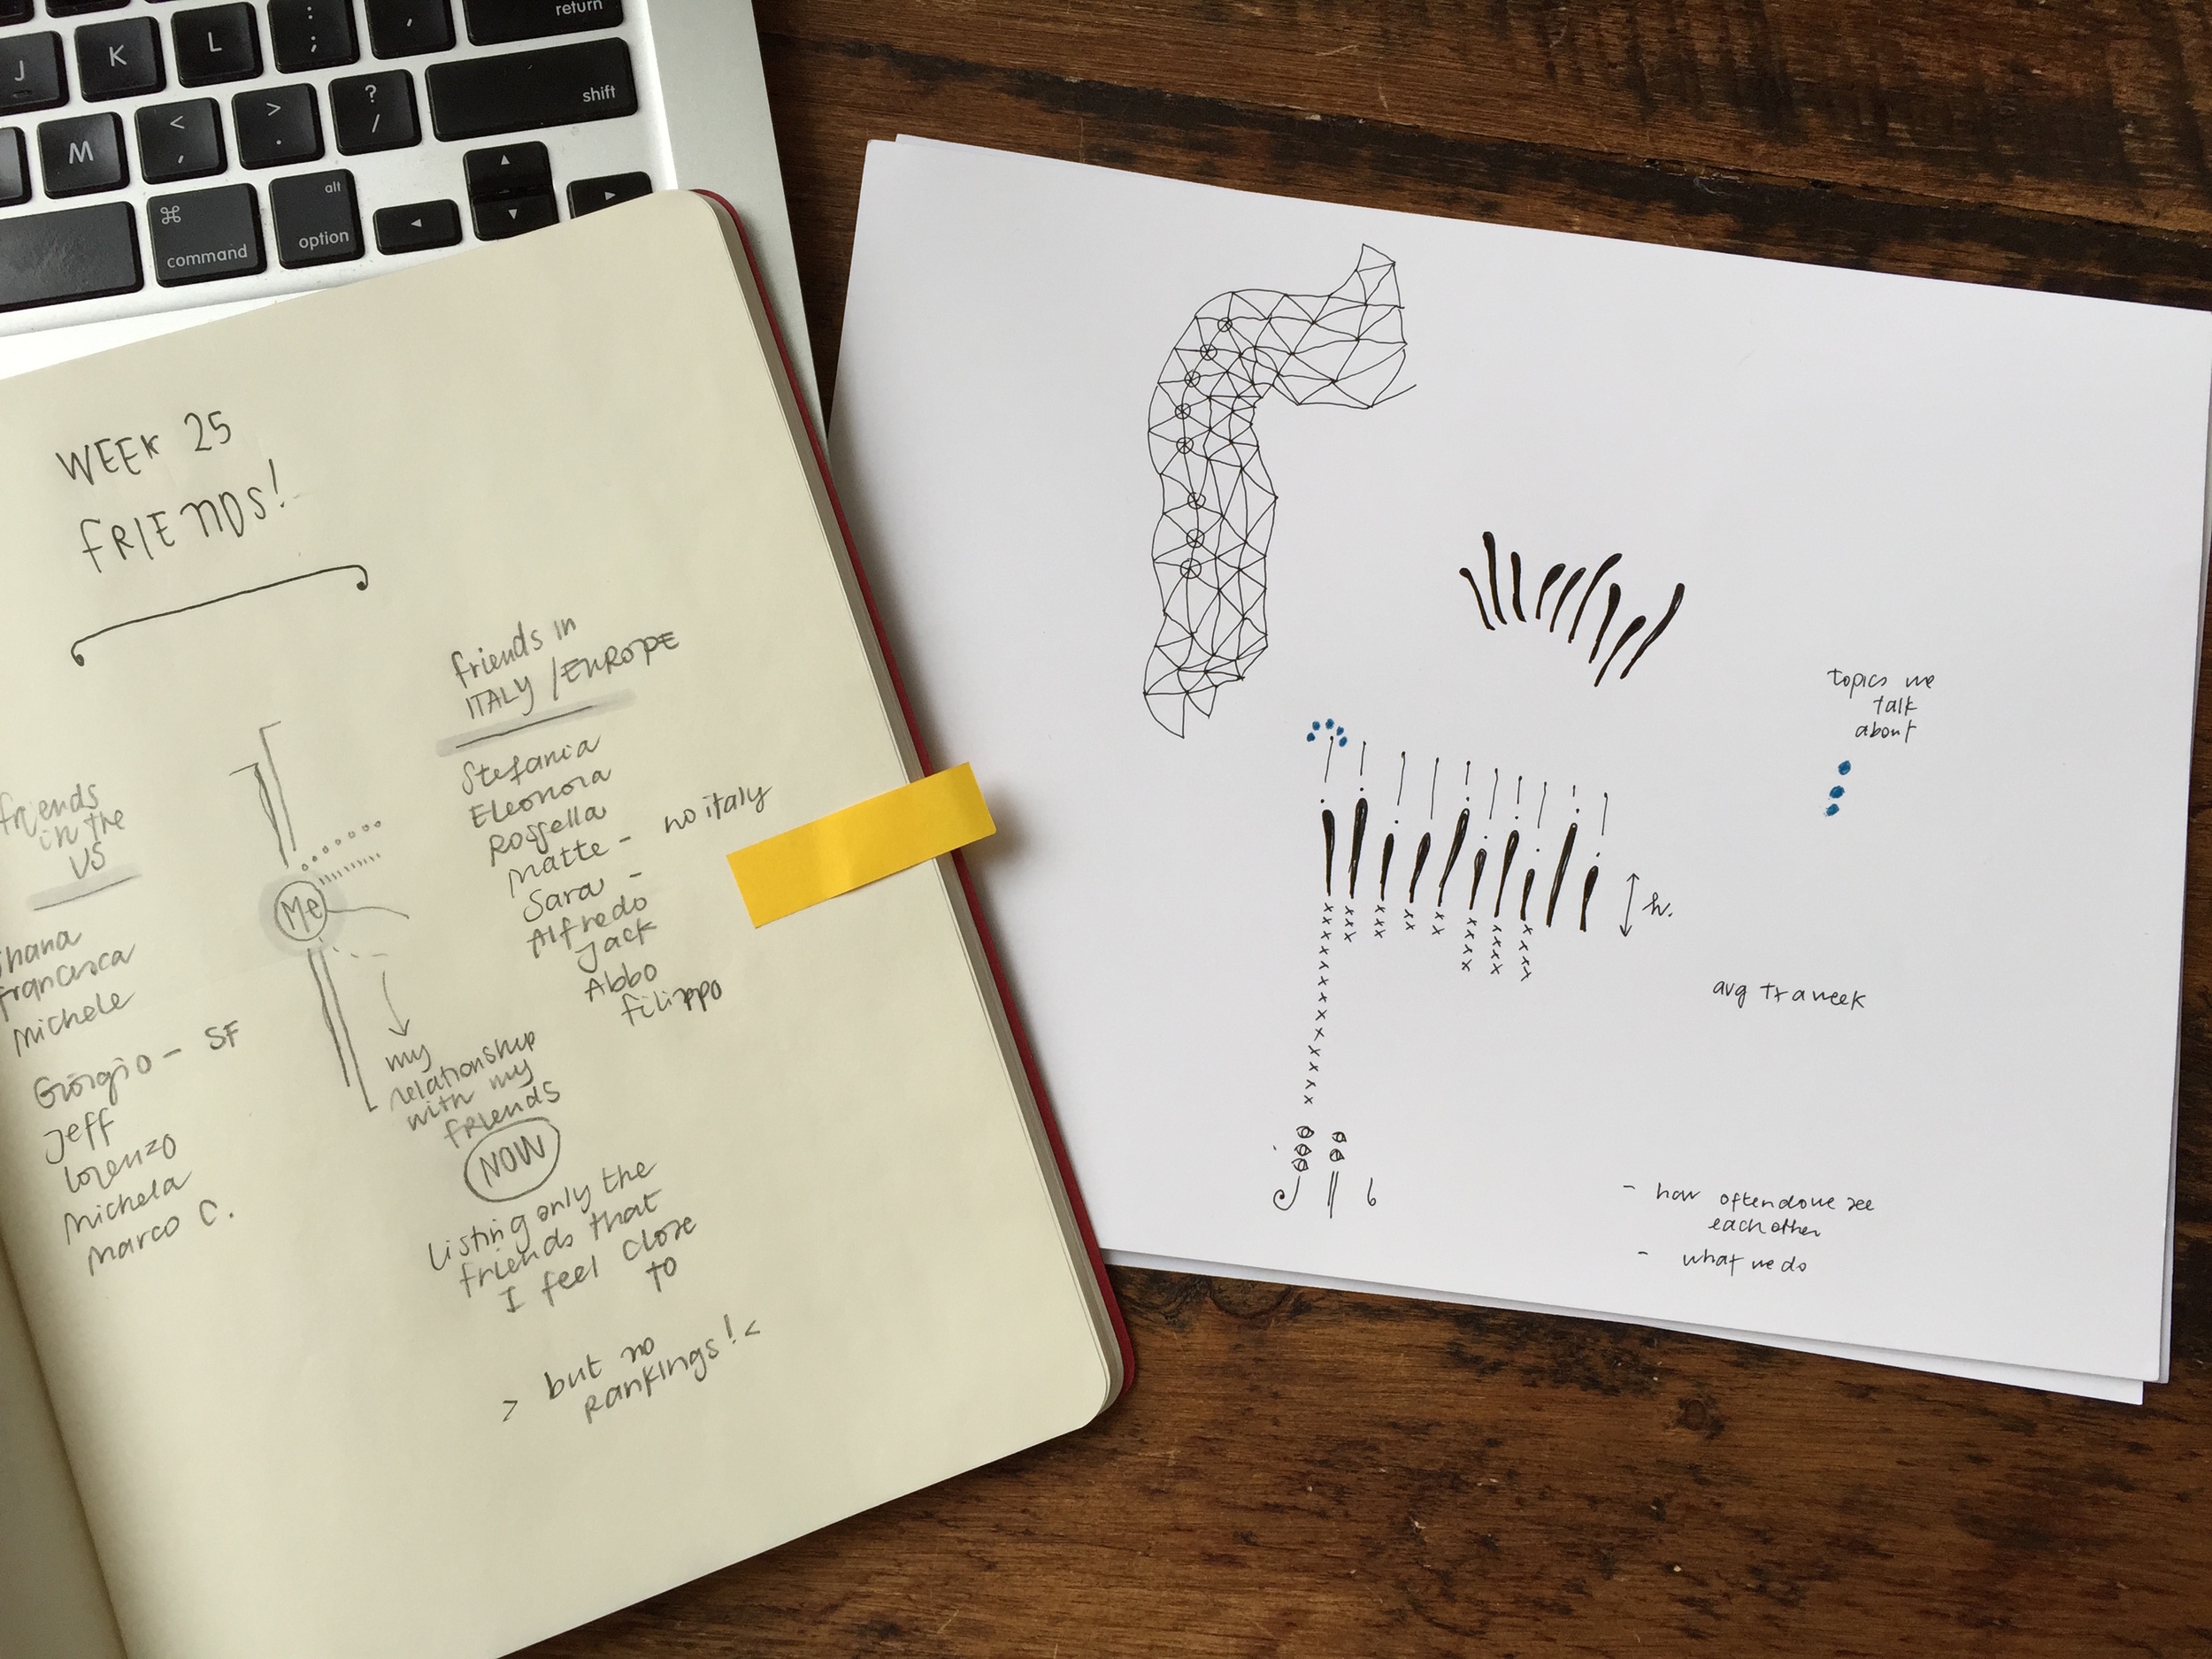 return
J
K
L
:
;
shift
M
<
,
>
.
?
/
⌘
command
alt
option
WEEK 25
FRIENDS!
friends
in the
US
francesca
michele
Giorgio - SF
Jeff
Lorenzo
Michela
Marco C.
Me
my
relationship
with my
friends
NOW
Listing only the
friends that
I feel close
to
> but no
rankings! <
friends in
ITALY / EUROPE
Stefania
Eleonora
Rossella
Matte - no italy
Sara -
Alfredo
Jack
Abbo
filippo
topics we
talk
about
h.
avg a week
- how often do we see
each other
- what we do